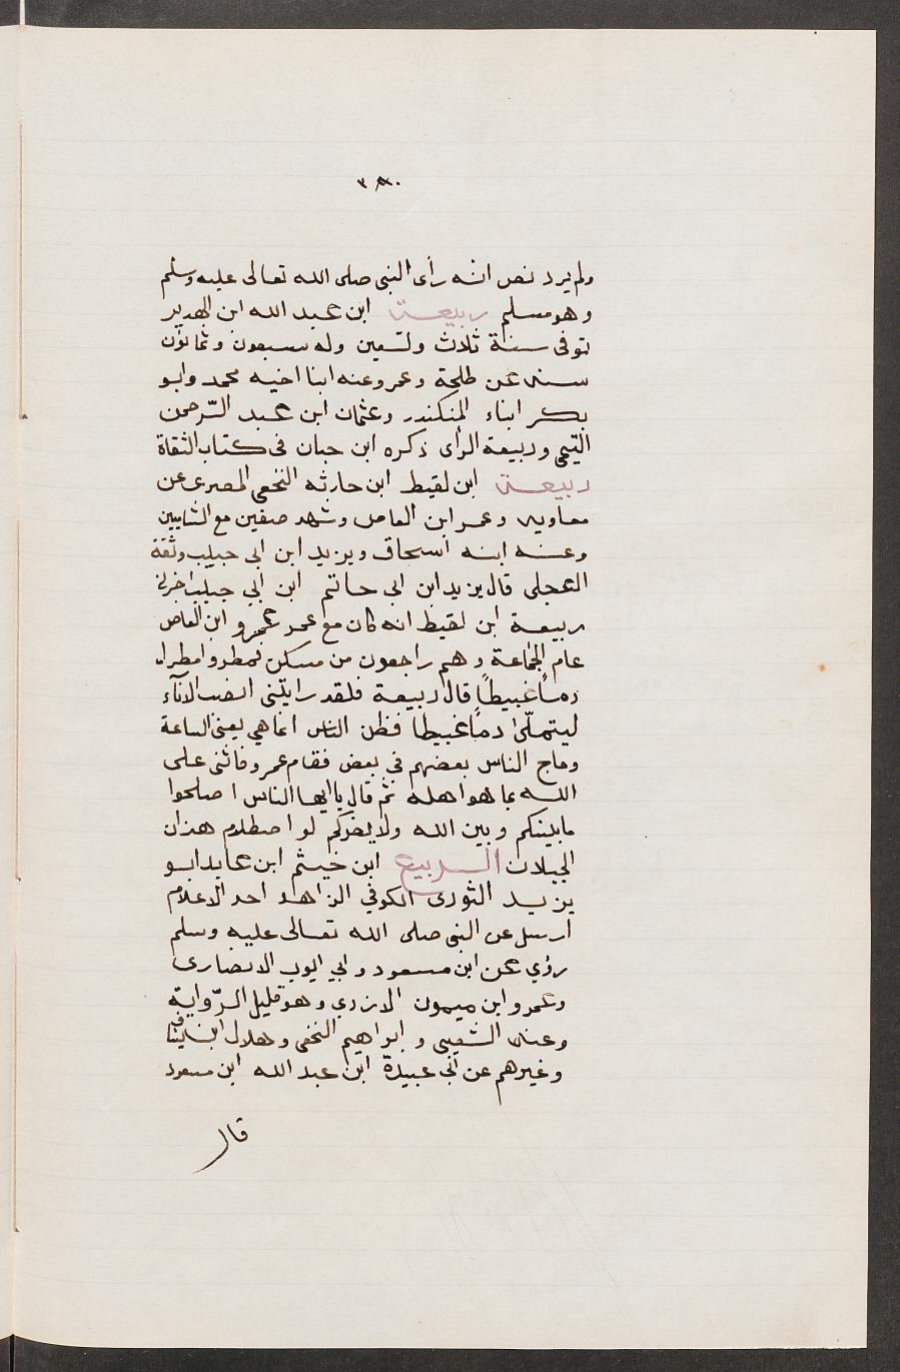 ولم يرد نص انه رأى النبى صلى الله تعالى عليه وسلم
وهو مسلم ربيعة ابن عبد الله ابن الهدير
توفى سنة ثلاث وتسعين وله سبعون وثمانون
سنه عن طلحة وعمر وعنه ابنا اخيه محمد وابو
بكر ابناء المنكندر وعثمان ابن عبد الرّحمن
التيمى وربيعة الرأى ذكره ابن حبان فى كتاب الثقاة
ربيعة ابن لقيط ابن حارثه النخعى المصرى عن
معاويه وعمر ابن العاص وشهد صفين مع الشاميين
وعنه ابنه اسحاق ويزيد ابن ابى حبيب وثقة
العجلى قال يزيد ابن ابى حاتم ابن ابي حبيب اخبرنى
ربيعة ابن لقيظ انه كان مع عمر عمرو ابن العاص
عام الجماعة وهم راجعون من مسكن فمطروا مطرا
دماً غبيطاً قال ربيعة فلقد رايتنى انصب الاناء
ليتملّئ دمًا غبيطا فظن الناس انما هي يعنى الساعة
وماج الناس بعضهم في بعض فقام عمرو فاثنى على
الله بما هو اهله ثم قال يا ايها الناس اصلحوا
ما بينكم وبين الله ولا يضركم لو اصطلام هذان
الجبلان الربيع ابن خيثم ابن عايد ابو
يزيد الثورى الكوفي الزاهد احد الاعلام
ارسل عن النبى صلى الله تعالى عليه وسلم
رؤي عن ابن مسعود وابي ايوب الانصارى
وعمرو ابن ميمون الازدي وهو قليل الرّواية
وعنه الشعبى وابراهيم النخعى وهلال ابن
وغيرهم عن أبى عبيدة ابن عبد الله ابن مسعود
قال